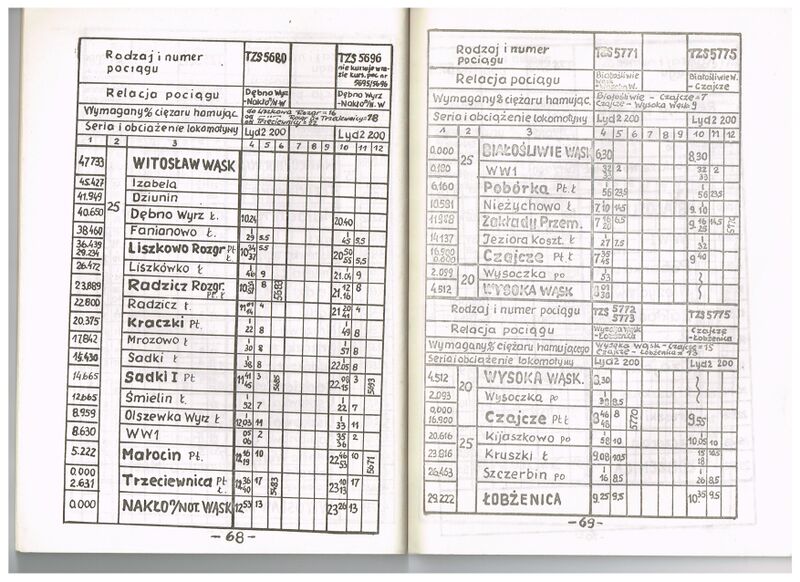 Rodzaj i numer pociągu TZS 5680 TZS 5696
nie kursuje w razie kurs. poc. nr 5695/5696
Relacja pociągu Dębno Wyrz - Nakło n/N.W Dębno Wyrz - Nakło n/N.W
Wymagany % ciężaru hamując.
Seria i obciążenie lokomotywy Lyd2 200 Lyd2 200
1 2 3 4 5 6 7 8 9 10 11 12
47.733 25 WITOSŁAW WĄSK
45.427 Izabela
41.949 Dziunin
40.650 Dębno Wyrz Ł. 10.24 20.40
38.460 Fanianowo Ł. 29 5.5 45 5.5
36.439 29.234 Liszkowo Rozgr Pt Ł 10 34 37 5.5 20 50 55 5.5
26.472 Liszkówko Ł 46 9 21.04 9
23.889 Radzicz Rozgr. Pt. Ł 5683 21 12 16 8
22.800 Radzicz Ł. 4 21 20 41 4
20.375 Kraczki Pt. 22 8 49 8
17.842 Mrozowo Ł 30 8 57 8
15.430 Sadki Ł 38 8 22.05 8
14.665 Sadki I Pt Ł 11 41 45 3 5685 22 09 15 3 5693
12.665 Śmielin Ł. 52 7 22 7
8.959 Olszewka Wyrz Ł 12.03 11 33 11
8.630 WW1 05 06 2 35 36 2
5.222 Małocin Pt. 12 16 19 10 22 46 53 10 5671
0.000 2.631 Trzeciewnica Pt Ł. 12 36 40 17 5483 23 10 13 17
0.000 NAKŁO n/NOT. WĄSK 12 53 13 23 26 13
- 68 -
Rodzaj i numer pociągu TZS 5771 TZS 5775
Relacja pociągu Białośliwie Białośliwie W. - Czajcze
Wymagany % ciężaru hamując. Białośliwie - Czajcze = 7
Czajcze - Wysoka wąsk = 9
Seria i obciążenie lokomotywy Lyd2 200 Lyd2 200
1 2 3 4 5 6 7 8 9 10 11 12
0.000 25 BIAŁOŚLIWIE WĄSK 6.30 8.30
0.180 WW1 32 33 2 32 33 2
6.160 Pobórka Pt. Ł 56 23.5 56 23.5
10.581 Nieżychowo Ł. 7.10 14.5 9.10
Zakłady Przem. 7 16 20 6.5 9 16 25 14.5 5770
14.137 Jeziora Koszt. Ł 27 7.5 32
16.900 0.000 Czajcze Pt Ł 7 35 45 9 40
2.099 20 Wysoczka po 53
4.512 WYSOKA WĄSK
Rodzaj i numer pociągu TZS 5772 5773 TZS 5775
Relacja pociągu Wysoka Wąsk - Łobżenica Czajcze - Łobżenica
Wymagany % ciężaru hamującego Wysoka wąsk - Czajcze = 15
Czajcze - Łobżenica = 13
Seria i obciążenie lokomotywy Lyd2 200 Lyd2 200
4.512 20 WYSOKA WĄSK. 8.30
2.093 Wysoczka po 8.5
0.000 16.900 Czajcze Pt Ł 8 46 48 8 5770 9.55
20.616 25 Kijaszkowo po 58 10 10.05 10
23.816 Kruszki Ł 9.08 10.5 15 18 10.5
26.463 Szczerbin po 16 8.5 26 8.5
29.222 ŁOBŻENICA 9.25 9.5 10 35 9.5
- 69 -